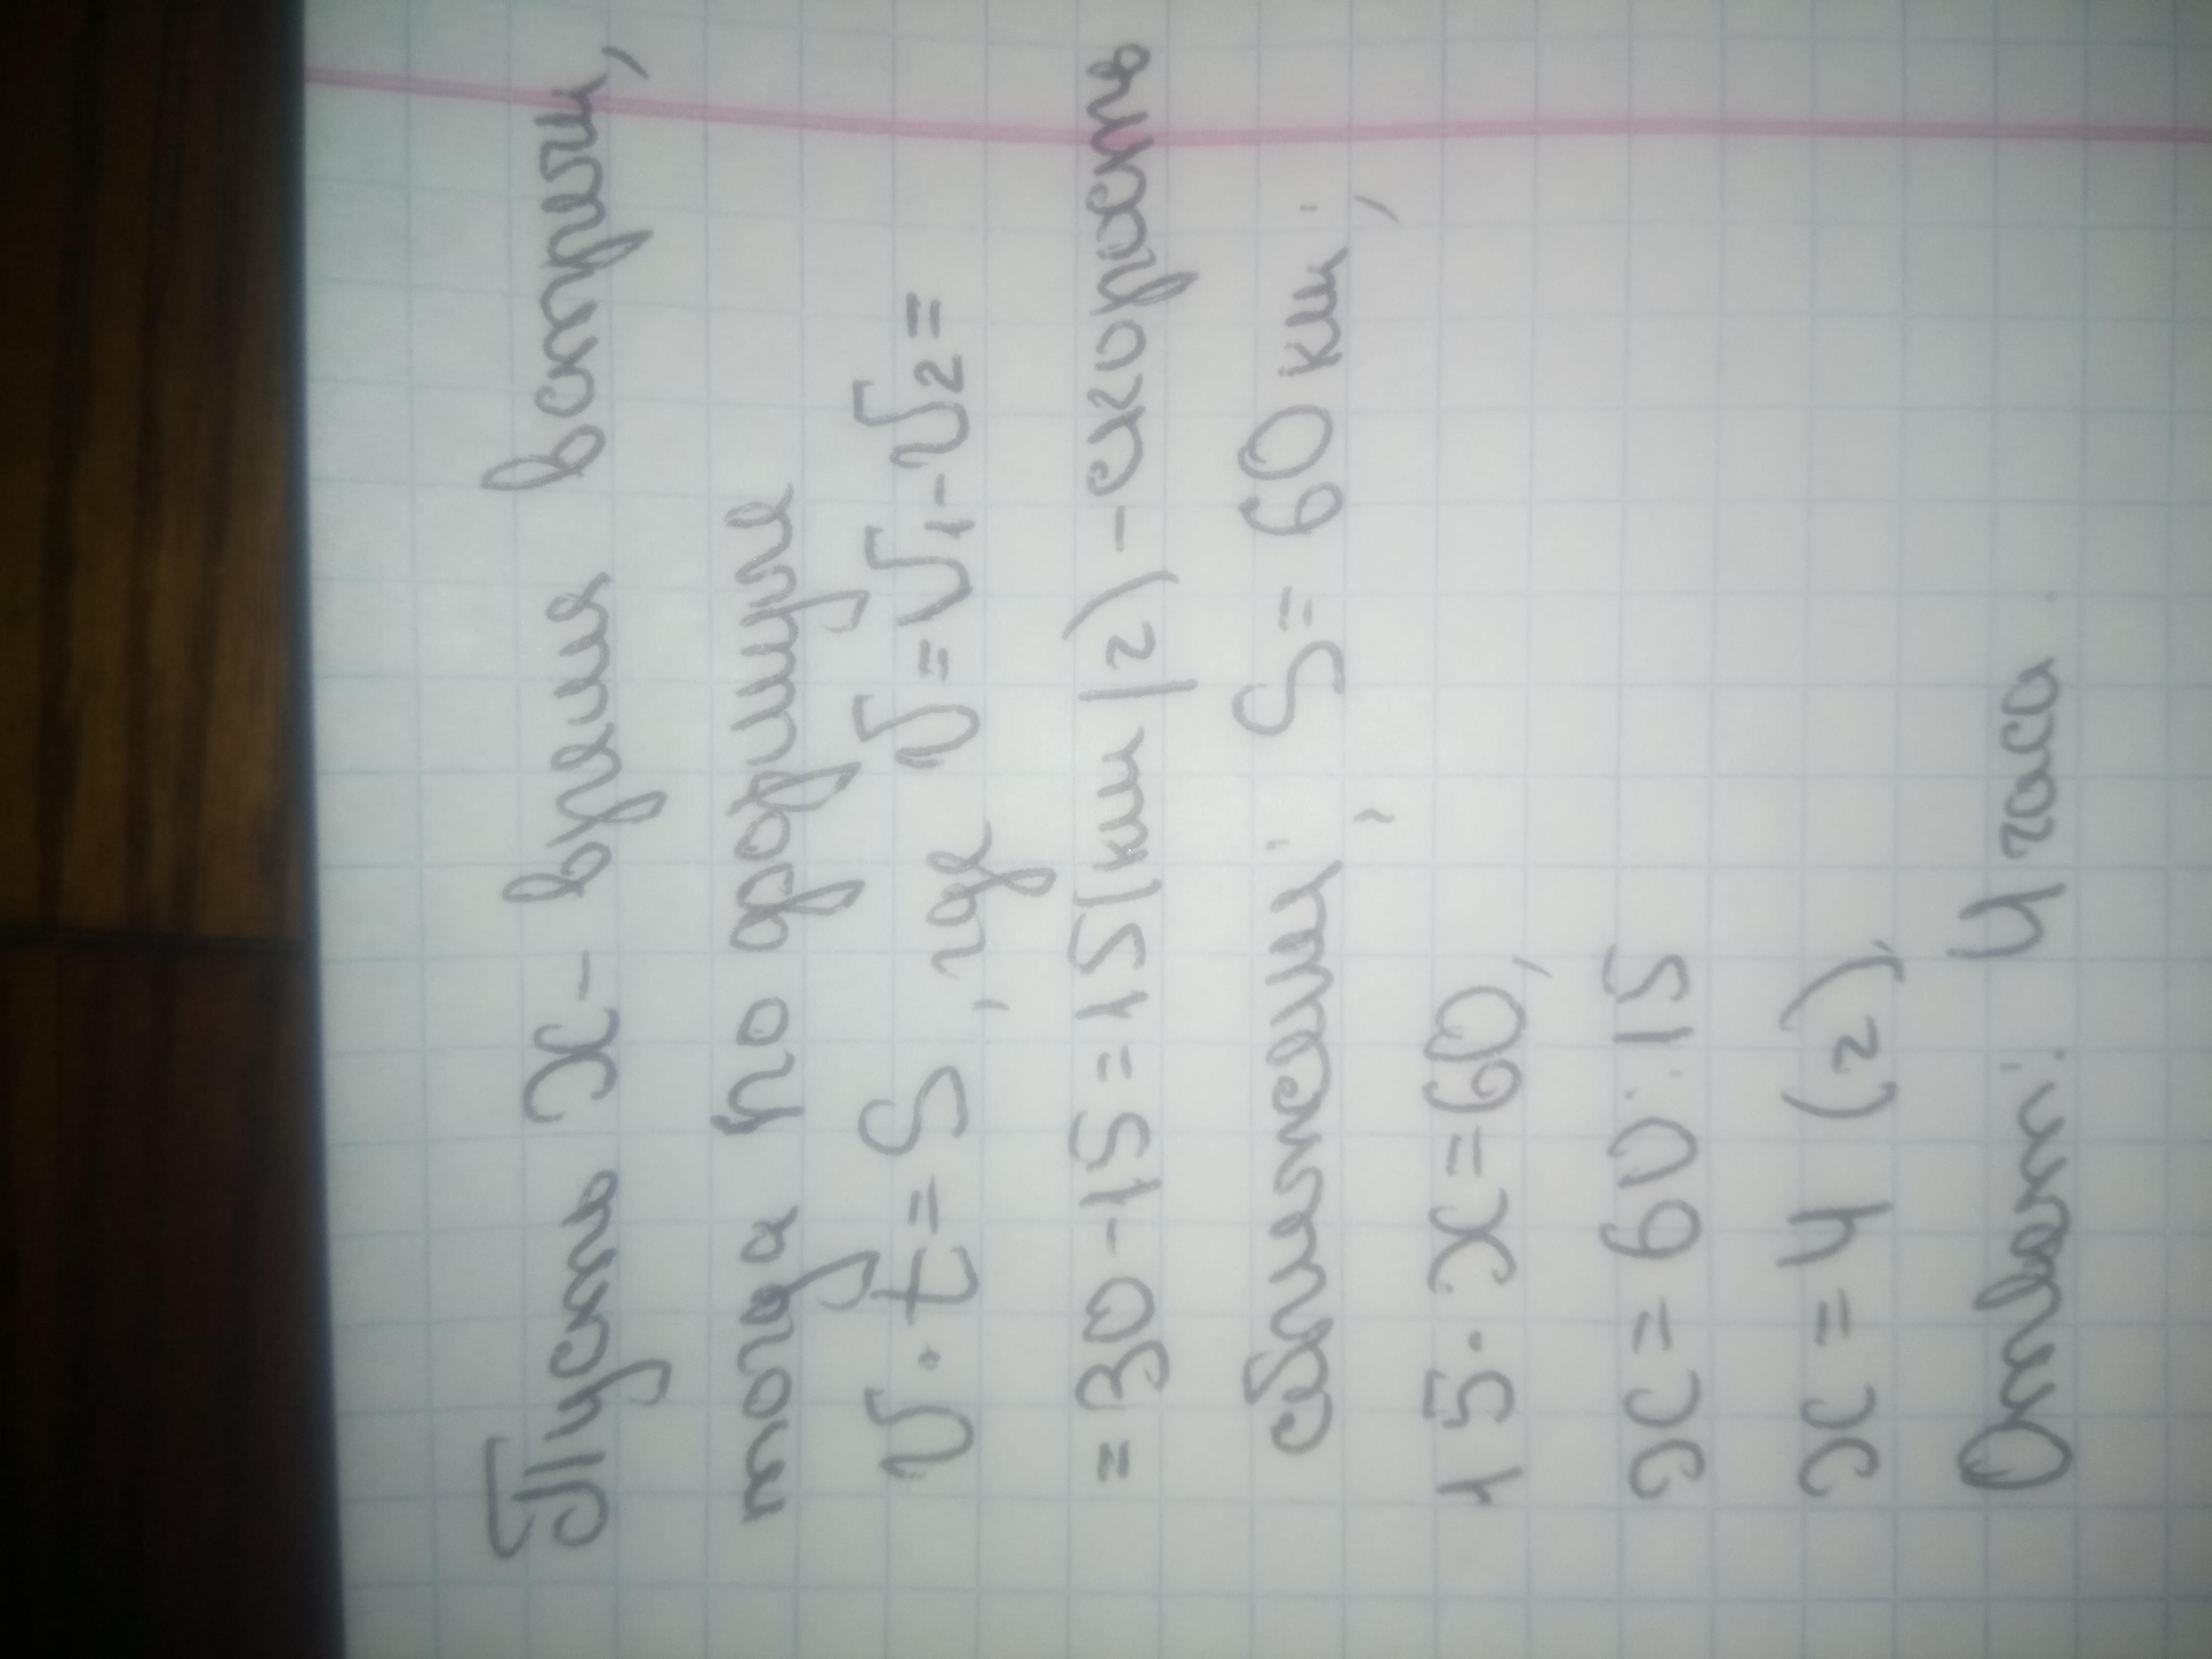 Пусть х- время встречи,
тогда по формуле
v · t = S, где v = v₁ - v₂ =
= 30 - 15 = 15 (км/г) - скорость
сближения; S = 60 км;
15 · х = 60,
х = 60 : 15
х = 4 (г),
Ответ: 4 часа.